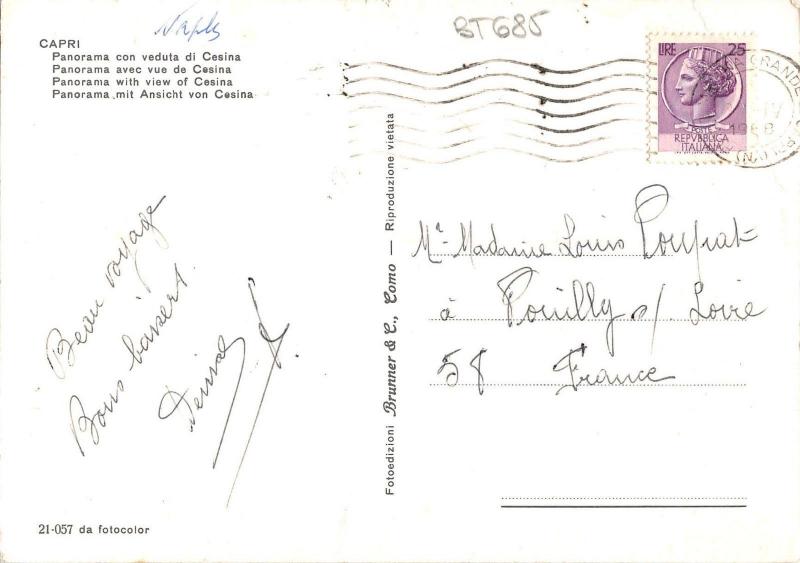 Naples
BT685
CAPRI
Panorama con veduta di Cesina
Panorama avec vue de Cesina
Panorama with view of Cesina
Panorama mit Ansicht von Cesina
LIRE 25
POSTE
REPVBBLICA
ITALIANA
GRANDE
IV
1968
(NA)
Beau voyage
Bons baisers
Denise
Fotoedizioni Brunner & C., Como — Riproduzione vietata
Mr Madame Louis
à Pouilly s/ Loire
58 France
21-057 da fotocolor